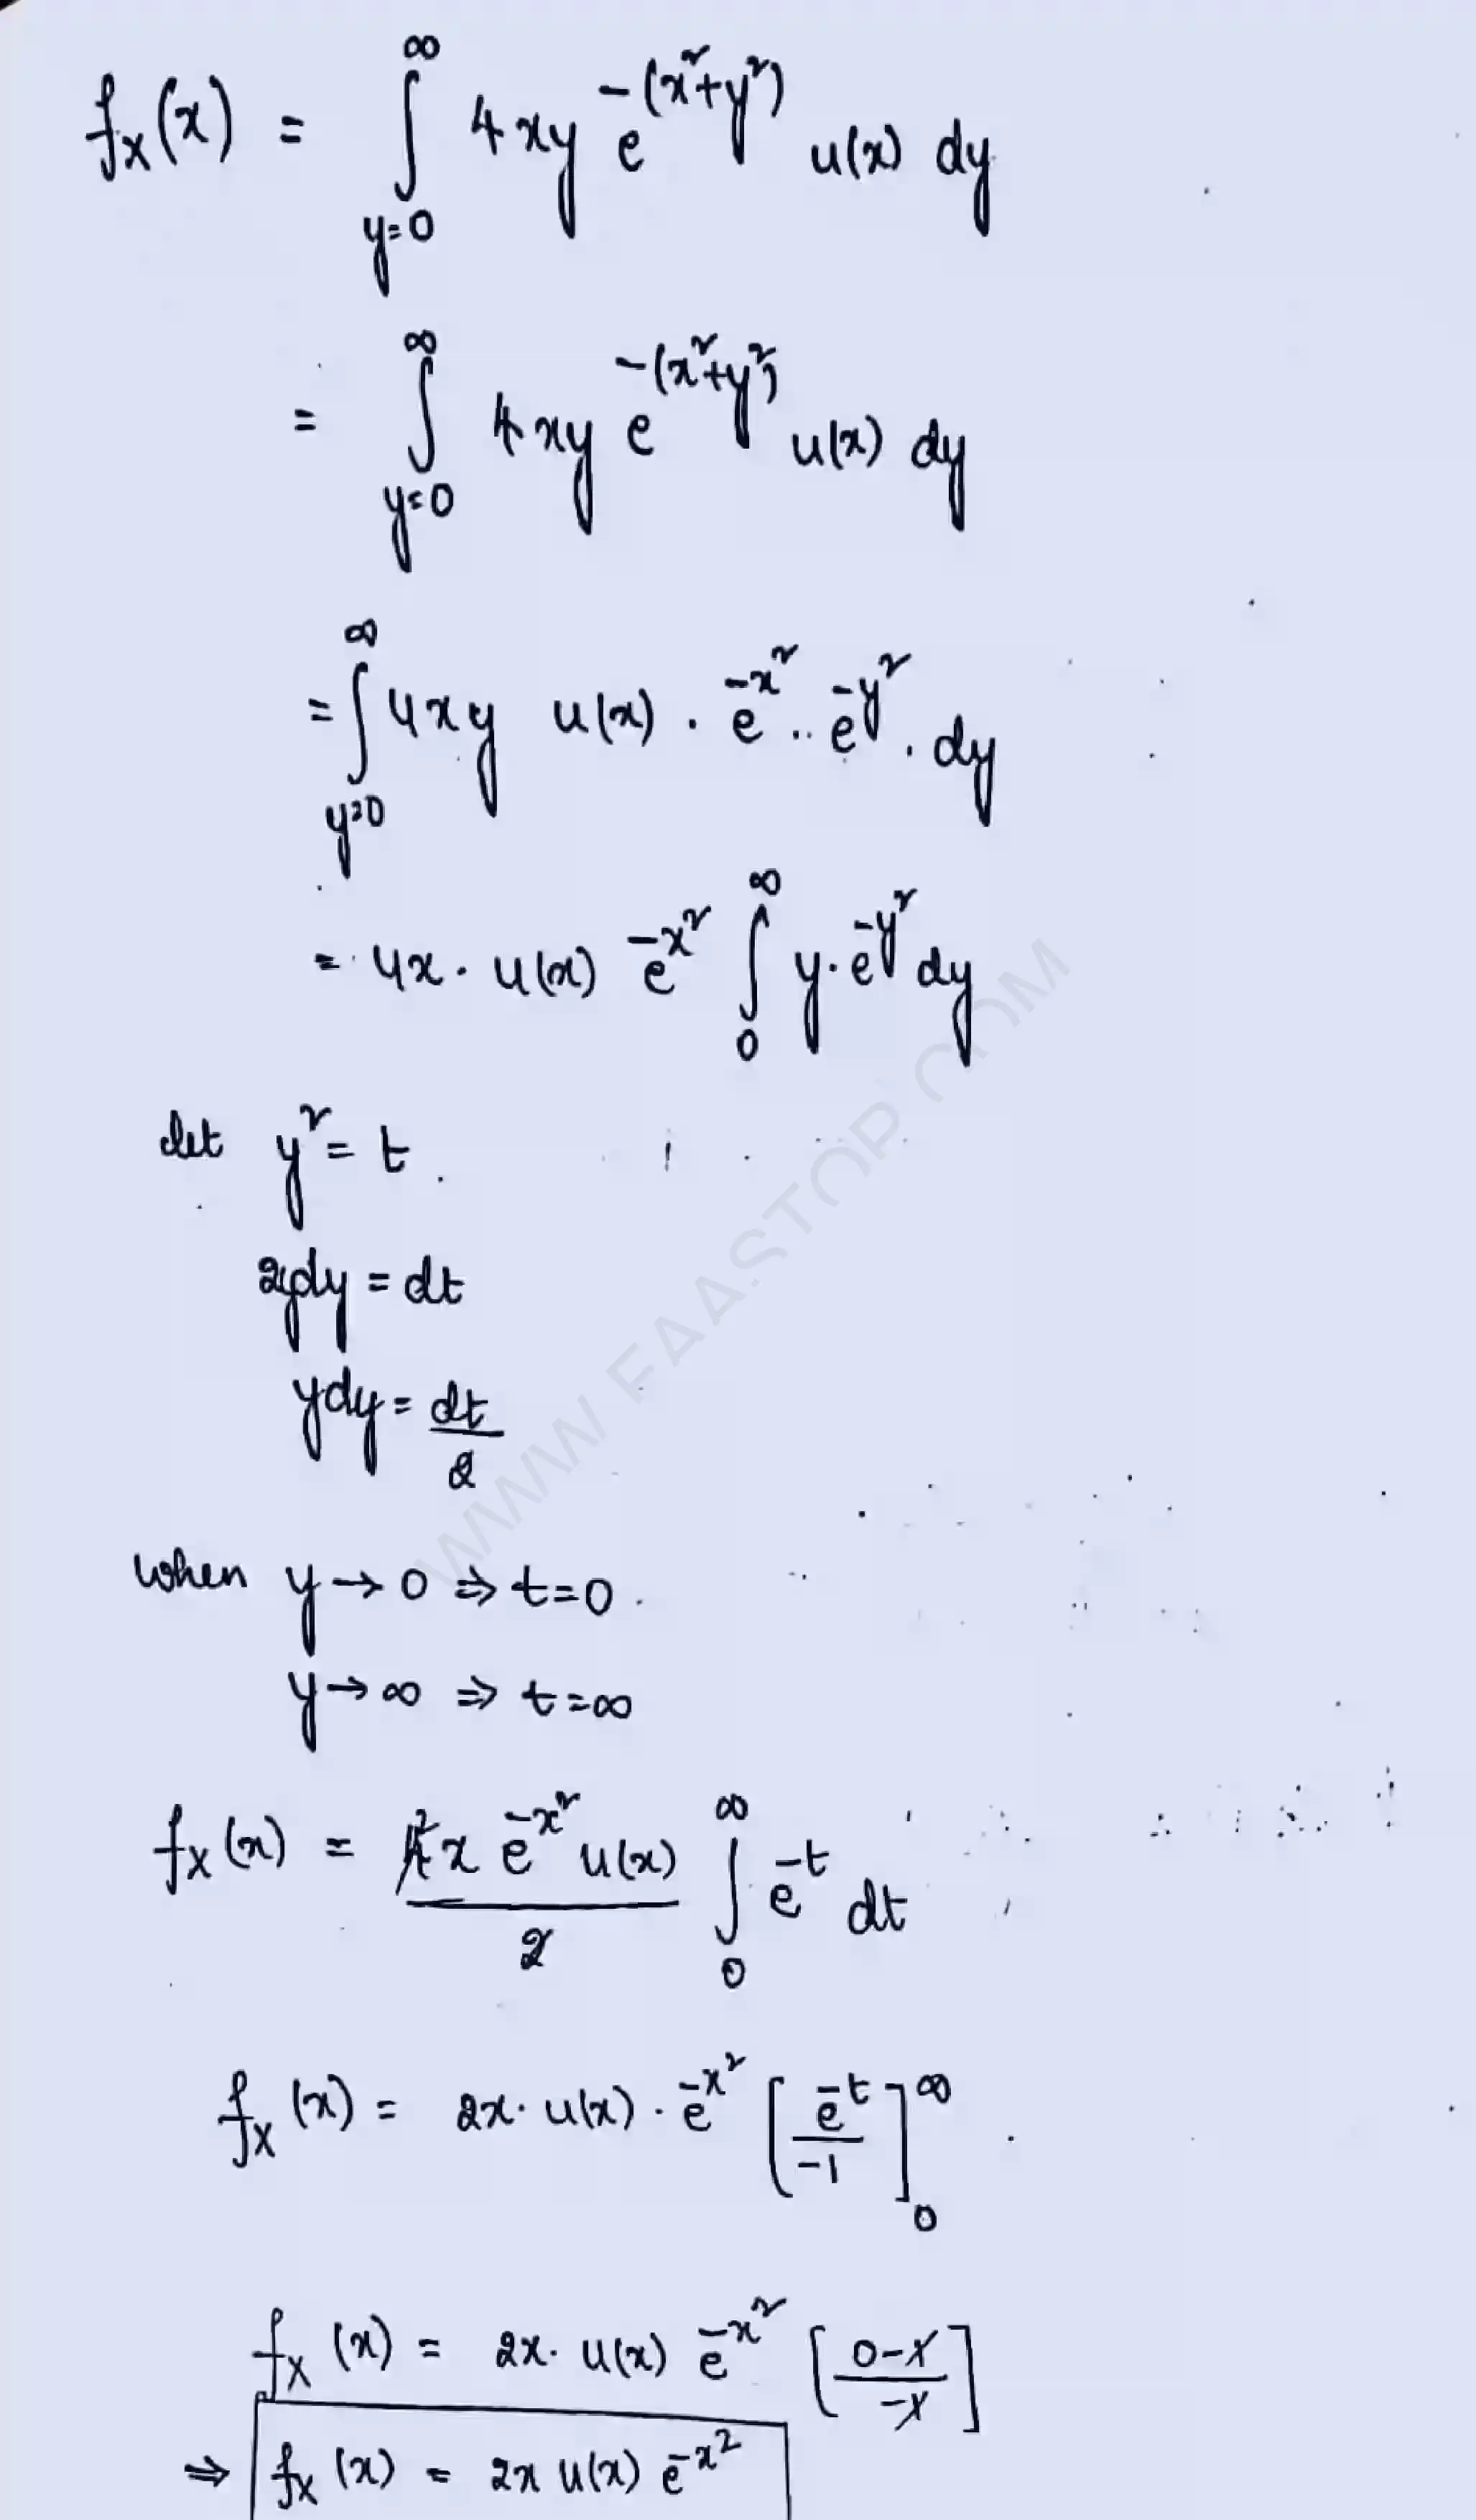 fₓ(x) = ∫_{y=0}^{∞} 4xy e^{-(x²+y²)} u(x) dy
= ∫_{y=0}^{∞} 4xy e^{-(x²+y²)} u(x) dy
= ∫_{y=0}^{∞} 4xy u(x) . e^{-x²} .. e^{-y²} . dy
= 4x . u(x) e^{-x²} ∫_{0}^{∞} y . e^{-y²} dy
Let y² = t.
2ydy = dt
ydy = dt/2
When y → 0 ⇒ t = 0.
y → ∞ ⇒ t = ∞
f_X(x) = 4̸² x e^{-x²} u(x) / 2̸ ∫_{0}^{∞} e^{-t} dt
f_X(x) = 2x . u(x) . e^{-x²} [e^{-t}/-1]_{0}^{∞}
f_X(x) = 2x . u(x) e^{-x²} [0-1̸ / -1̸]
⇒ f_X(x) = 2x u(x) e^{-x²}
WWW.FAASTOP.COM